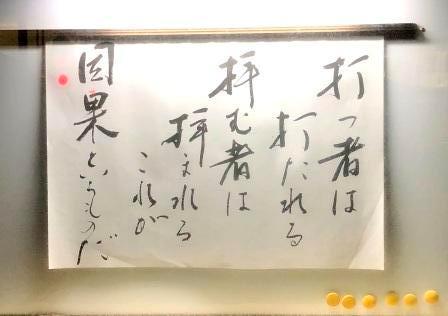 打つ者は
打たれる
拝む者は
拝まれる
これが
因果というものだ